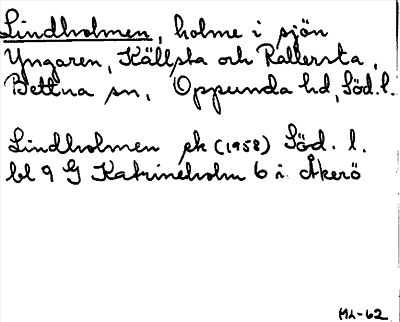 Lindholmen, holme i sjön
Yngaren, Källsta och Rallersta,
Bettna sn, Oppunda hd, Söd. l.
Lindholmen sk (1958) Söd. l.
bl 9 G Katrineholm 6 i Åkerö
ML-62